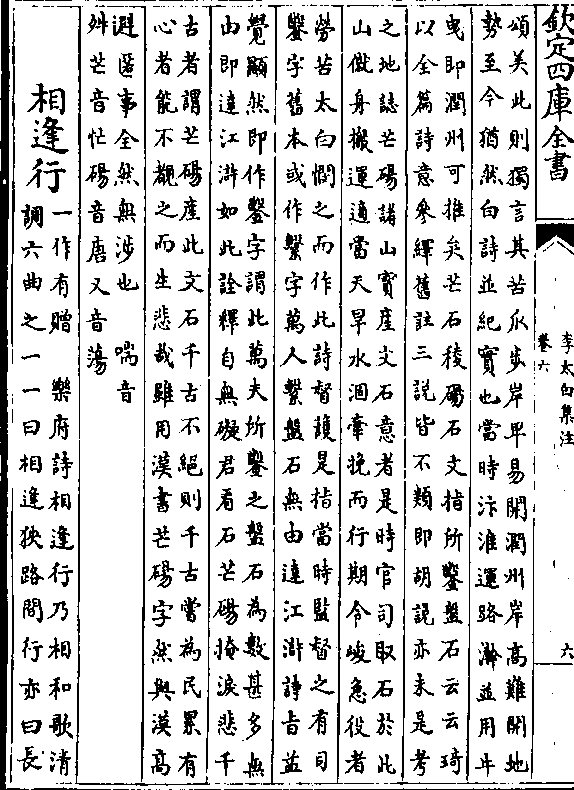 欽定四庫全書
李太白集注
卷六
六
頌美此則獨言其苦瓜步岸卑易開潤州岸高難開地
勢至今猶然白詩並紀實也當時汴淮運路瀚並用牛
曳即潤州可推矣芒石稜碭石文指所鑿盤石云云琦
以全篇詩意參繹舊註三說皆不類即胡說亦未是考
之地誌芒碭諸山實產文石意者是時官司取石於此
山僦身搬運適當天旱水涸牽挽而行期令峻急役者
勞苦太白憫之而作此詩督護是指當時監督之有司
鑿字舊本或作繫字萬人繫盤石無由達江滸詩旨益
覺顯然即作鑿字謂此萬夫所鑿之盤石為數甚多無
由即達江滸如此詮釋自無礙君看石芒碭掩淚悲千
古者謂芒碭產此文石千古不絶則千古嘗為民累有
心者能不覩之而生悲哉雖用漢書芒碭字然與漢高
避匿事全然無涉也 喘音
舛芒音忙碭音唐又音蕩
相逢行
一作有贈 樂府詩相逢行乃相和歌清
調六曲之一一曰相逢狹路間行亦曰長